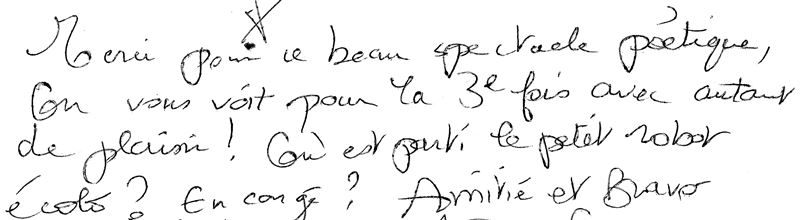 Merci pour ce beau spectacle poétique,
On vous voit pour la 3e fois avec autant
de plaisir ! Où est parti le petit robot
écolo ? En congé ? Amitié et Bravo